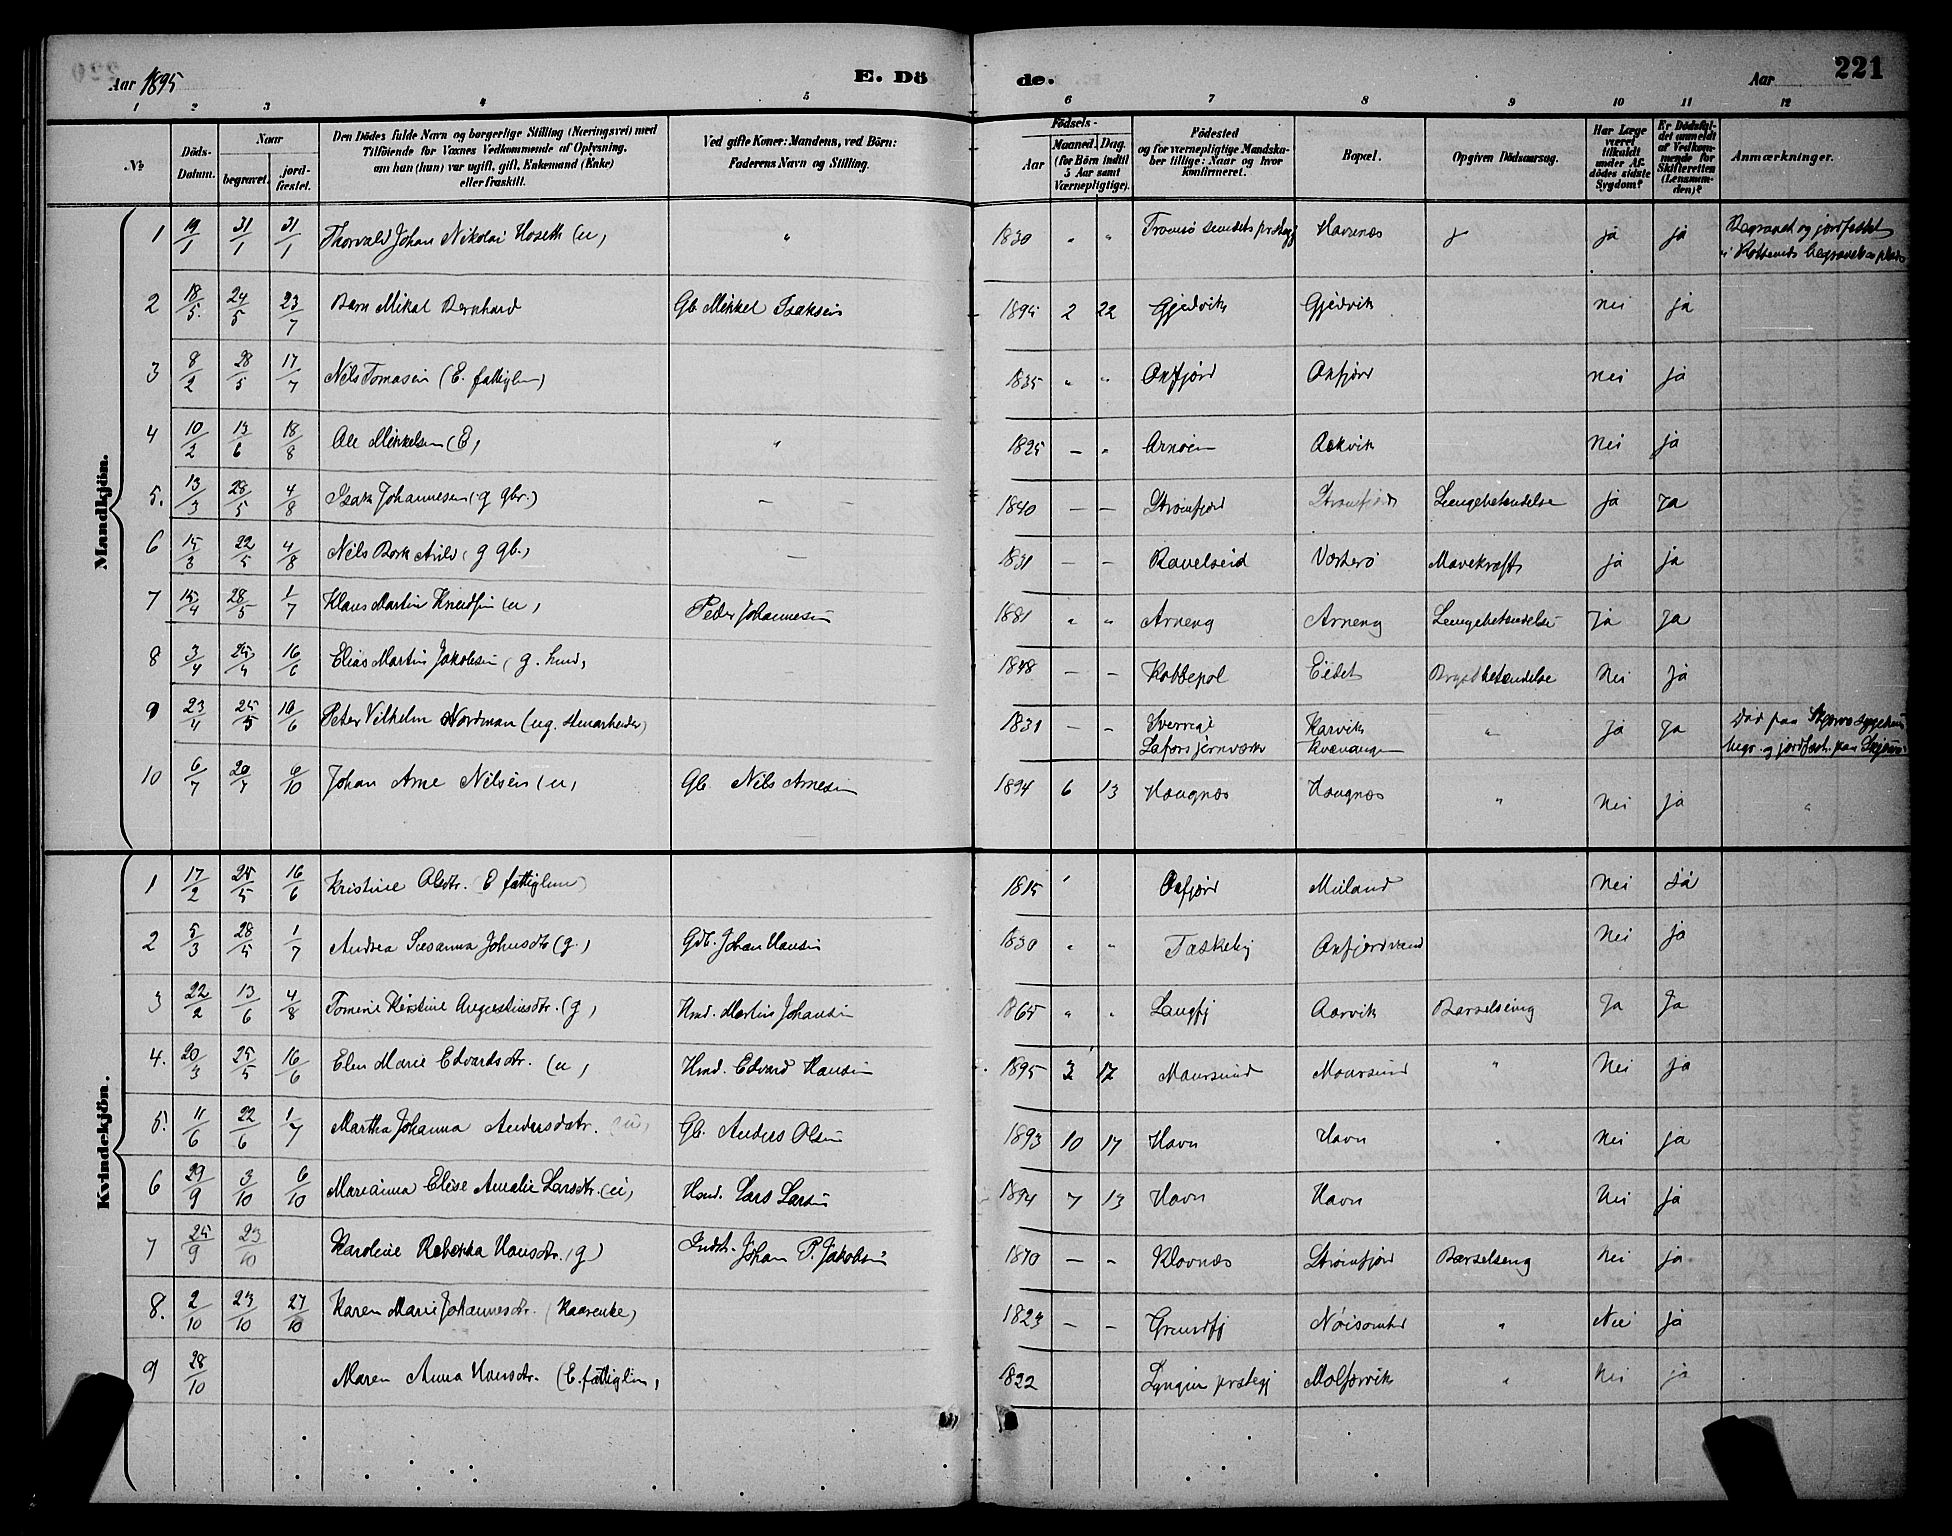 Aar 1895 E. Döde. Aar 221
1 2 3 4 5 6 7 8 9 10 11 12
№ Döds-Datum. Naar begravet. jordfæstet. Den Dödes fulde Navn og borgerlige Stilling (Næringsvei) med Tilföiende for Voxnes Vedkommende af Oplysning, om han (hun) var ugift, gift, Enkemand (Enke) eller fraskilt. Ved gifte Koner: Mandens, ved Börn: Faderens Navn og Stilling. Födsels- Aar Maaned. Dag. (for Börn indtil 5 Aar samt Værnepligtige). Födested og for værnepligtige Mandskaber tillige: Naar og hvor konfirmeret. Bopæl. Opgiven Dödsaarsag. Har Læge været tilkaldt under Afdödes sidste Sygdom? Er Dödsfaldet anmeldt af Vedkommende for Skifteretten (Lensmanden)? Anmærkninger.
Mandkjön.
1 19/1 31/1 31/1 Thorvald Johan Nikolai Hoseth (u) " 1830 " " Tromsø Havnnæs ja ja Begravet og jordfestet
2 18/5 24/5 23/7 Barn Mikal Bernhard Gb. Mikkel Isaksen 1895 2 22 Gjødvik Gjødvik nei ja
3 8/2 28/5 17/7 Nils Tomasen (E. fattiglem) 1835 " " Oxfjord Oxfjord nei ja
4 10/2 13/6 18/8 Ole Mikkelsen (E) " 1825 – " Arnøen Aakvik nei ja
5. 13/3 28/5 4/8 Isak Johannesen (g gbr.) – – 1840 – – Strømfjord Strømfjord Lungebetændelse ja ja
6 15/3 22/5 4/8 Nils Bork Arild (g gb.) – 1831 – – Ravelseid Vorterø Mavekræft ja ja
7 15/4 28/5 1/7 Klaus Martin Knudsen (u) Peder Johannesen 1881 " " Arneng Arneng Lungebetændelse ja ja
8 3/4 25/4 16/6 Elias Martin Jakobsen (g. hmd) 1848 – – Kobbepol Eidet Brystbetændelse Nei ja
9 23/4 25/5 16/6 Peter Vilhelm Nordman (ug. stenarbeider) 1831 – – Sverrige Karvik " ja ja Død paa Skjervø sygehus
Lafors jernværk Kvænangen begr. og jordfest. paa Skjervø
10 6/7 20/7 6/10 Johan Arne Nilsen (u) Gb. Nils Arnesen 1894 6 13 Haugnæs Haugnæs " Nei ja "
Kvindekjön.
1 17/2 25/5 16/6 Kristine Olsdtr. (E fattiglem) 1815 ' Oxfjord Meiland Nei ja
2 5/3 28/5 1/7 Andrea Susanna Johnsdtr (g.) Gdb. Johan Hansen 1830 " " Taskeby Oxfjordvand Nei ja
3 22/2 13/6 4/8 Tomine Kirstine Augustinusdtr. (g) Hmd. Martin Johansen 1865 " " Langfj Aarvik Barselseng Ja Ja
4. 20/3 25/5 16/6 Elen Marie Edvardsdtr. (u) Hmd. Edvard Hansen 1895 3 17 Maursund Maursund " Nei ja
5. 11/6 22/6 1/7 Martha Johanna Andersdatr. (u) Gb. Anders Olsen 1893 10 17 Havn Havn " Nei ja
6 29/9 3/10 6/10 Marianna Elise Amalie Larsdtr. (u) Hmd. Lars Larsen 1894 7 13 Havn Havn Nei ja
7 25/9 23/10 Karoline Rebekka Hansdtr. (g) Indst. Johan P. Jakobsen 1870 – – Klovnæs Strømfjord Barselseng Nei ja
8. 2/10 23/10 27/10 Karen Marie Johannesdtr. (Kaarenke) 1823 – – Grundfj " Nei ja
9 28/10 Maren Anna Hansdtr. (E. fattiglem) 1822 Lyngen prstegj " Nei ja